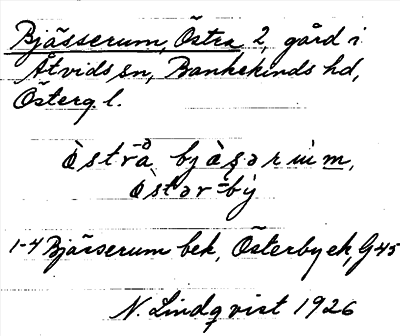 Bjässerum, Östra 2, gård i
Åtvids sn, Bankekinds hd,
Österg. l.
òstrå bjàsərùm,
òstər=bý
1-4 Bjässerum bek, Österby ek, G45
N. Lindqvist 1926